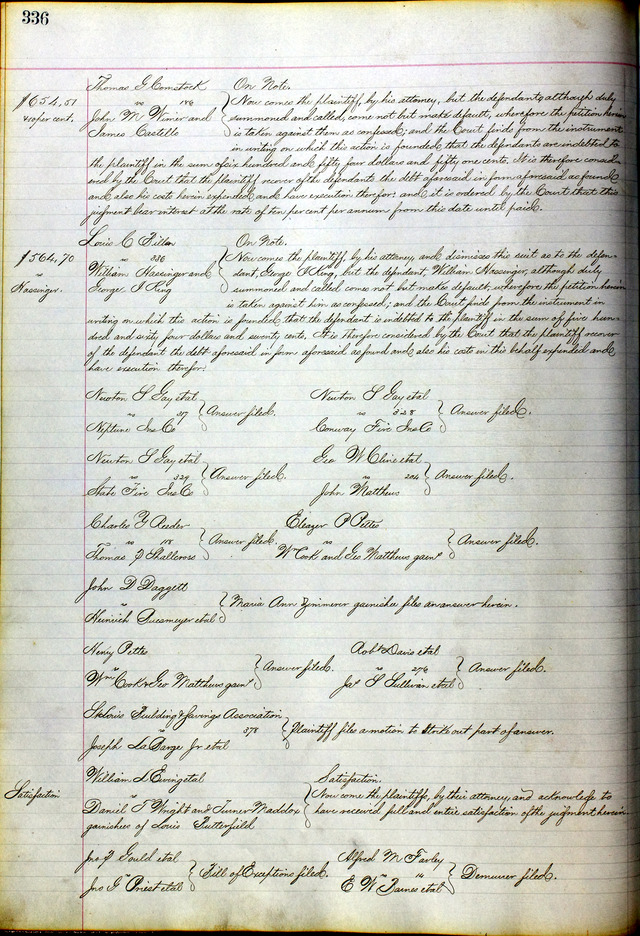 336
Thomas G Comstock On Note.
$654,51 vs 186 Now comes the plaintiff, by his attorney, but the defendants although duly
10 per cent. John M Wimer and summoned and called, come not but make default, wherefore the petition herein
James Castello is taken against them as confessed; and the Court finds from the instrument
in writing on which this action is founded, that the defendants are indebted to
the plaintiff in the sum of six hundred and fifty four dollars and fifty one cents. It is therefore consid-
ered by the Court that the plaintiff recover of the defendants the debt aforesaid in form aforesaid as found
and also his costs herein expended and have execution therefor: and it is ordered by the Court that this
judgment bear interest at the rate of ten per cent per annum from this date until paid.
Louis C On Note.
$564,70 vs 336 Now comes the plaintiff, by his attorney, and dismisses this suit as to the defen-
vs William Hassinger and dant, George King, but the defendant, William Hassinger, although duly
Hassinger. George King summoned and called come not but makes default, wherefore the petition herein
is taken against him as confessed; and the Court finds from the instrument in
writing on which this action is founded, that the defendant is indebted to the plaintiff in the sum of five hun-
dred and sixty four dollars and seventy cents. It is therefore considered by the Court that the plaintiff recover
of the defendant the debt aforesaid in form aforesaid as found and also his costs in this behalf expended and
have execution therefor.
Newton S Gay etal Newton S Gay etal
vs 317 Answer filed. vs 328 Answer filed.
Neptune Ins Co Conway Fire Ins Co
Newton S Gay etal Geo W Cline etal
vs 329 Answer filed. vs 204 Answer filed.
State Fire Ins Co John Matthews
Charles Y Reeder Eleazer P Pettes
vs 188 Answer filed. vs Answer filed.
Thomas J Shallcross Wm Cook and Geo Matthews garn'
John D Daggett
vs Maria Ann garnishee files an answer herein.
Heinrich etal
Henry Pettes Robt Davis etal
vs Answer filed. vs 276 Answer filed.
Wm Cook & Geo Matthews garn' Jas S Sullivan etal
St Louis Building & Savings Association
vs 378 Plaintiff files a motion to Strike out part of answer.
Joseph LaBarge Jr etal
William L Ewing etal Satisfaction.
Satisfaction vs Now come the plaintiff, by this attorney, and acknowledge to
Daniel T Wright and Turner Maddox have received full and entire satisfaction of the judgment herein
garnishees of Louis Butterfield
Jno J Gould etal Alfred M Farley
vs Bill of Exceptions filed. vs 14 Demurrer filed.
Jno G Priest etal E W James etal